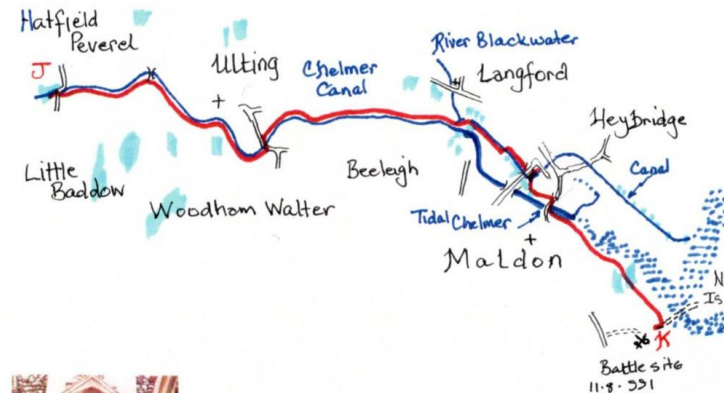 Hatfield
Peverel
J
Ulting
Chelmer
Canal
River Blackwater
Langford
Heybridge
Canal
Little
Baddow
Woodham Walter
Beeleigh
Tidal Chelmer
Maldon
N
Is
K
Battle site
11·8·991